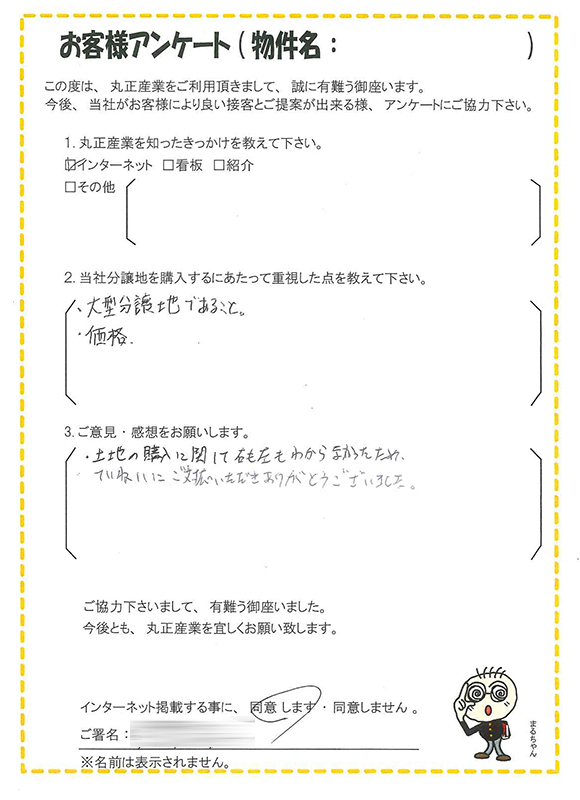 お客様アンケート（物件名：　　　　　　）
この度は、丸正産業をご利用頂きまして、誠に有難う御座います。
今後、当社がお客様により良い接客とご提案が出来る様、アンケートにご協力下さい。
1. 丸正産業を知ったきっかけを教えて下さい。
☑インターネット □看板 □紹介
□その他
2. 当社分譲地を購入するにあたって重視した点を教えて下さい。
・大型分譲地であること。
・価格.
3. ご意見・感想をお願いします。
・土地の購入に関して右も左もわからなかったため、
ていねいにご対応いただきありがとうございました。
ご協力下さいまして、有難う御座いました。
今後とも、丸正産業を宜しくお願い致します。
インターネット掲載する事に、同意します・同意しません。
ご署名：
※名前は表示されません。
まるちゃん